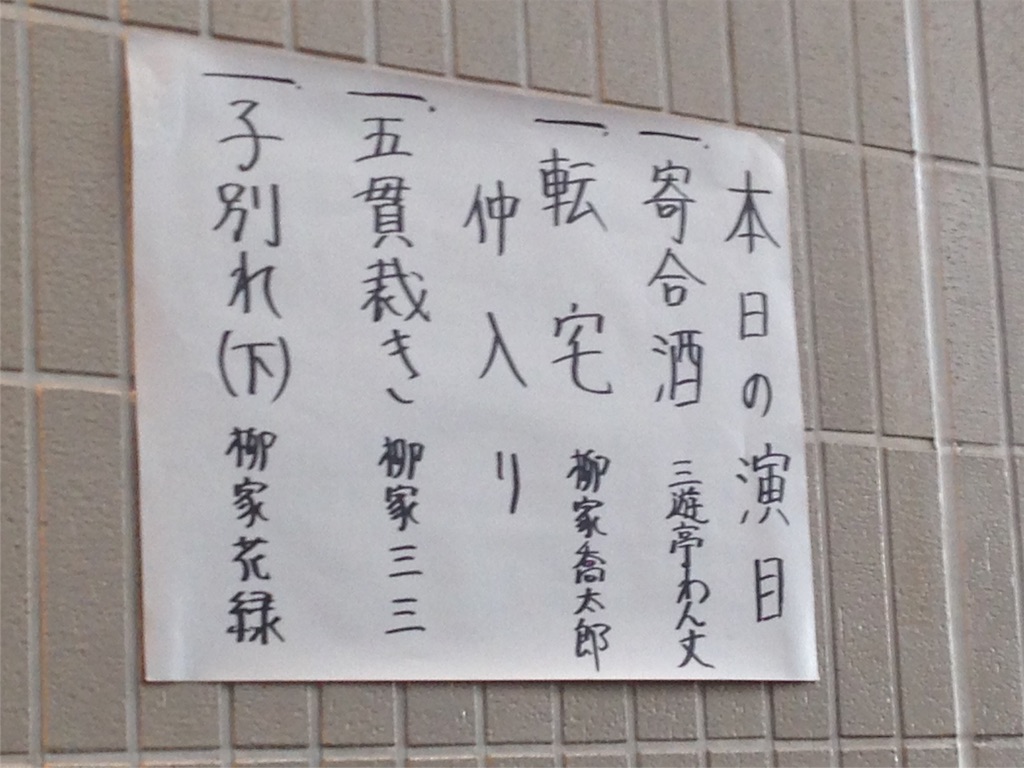 本日の演目
一.寄合酒 三遊亭わん丈
一.転宅 柳家喬太郎
仲入り
一.五貫裁き 柳家三三
一.子別れ(下) 柳家花緑